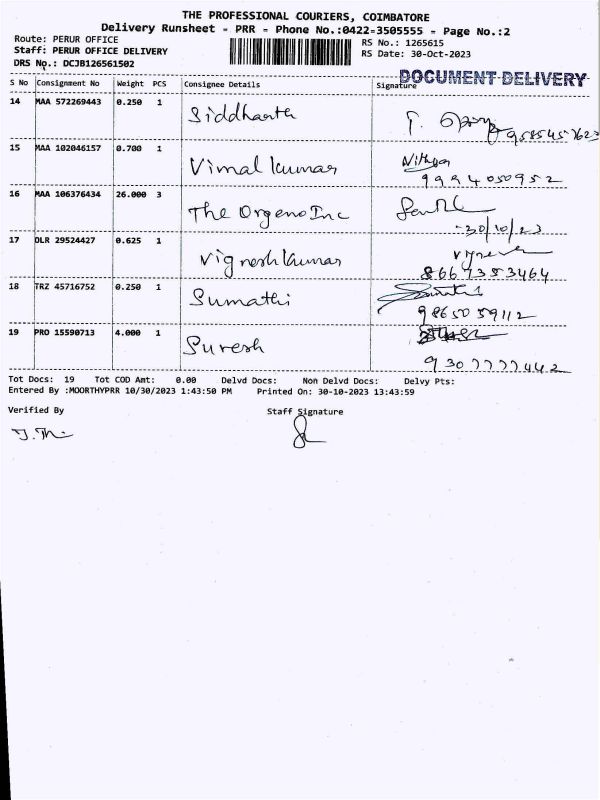 THE PROFESSIONAL COURIERS, COIMBATORE
Delivery Runsheet - PRR - Phone No.:0422-3505555 - Page No.:2
Route: PERUR OFFICE
RS No.: 1265615
Staff: PERUR OFFICE DELIVERY
RS Date: 30-Oct-2023
DRS No.: DCJB126561502
DOCUMENT DELIVERY
S No Consignment No Weight PCS Consignee Details Signature
14 MAA 572269443 0.250 1 Siddharth
15 MAA 102046157 0.700 1 Vimal kumar Nithya
9994050952
16 MAA 106376434 26.000 3 The Orgeno Inc
30/10/23
17 DLR 29524427 0.625 1 Vignesh kumar
8667353464
18 TRZ 45716752 0.250 1 Sumathi
9865059112
19 PRO 15590713 4.000 1 Suresh
9307777442
Tot Docs: 19 Tot COD Amt: 0.00 Delvd Docs: Non Delvd Docs: Delvy Pts:
Entered By :MOORTHYPRR 10/30/2023 1:43:50 PM Printed On: 30-10-2023 13:43:59
Verified By Staff Signature